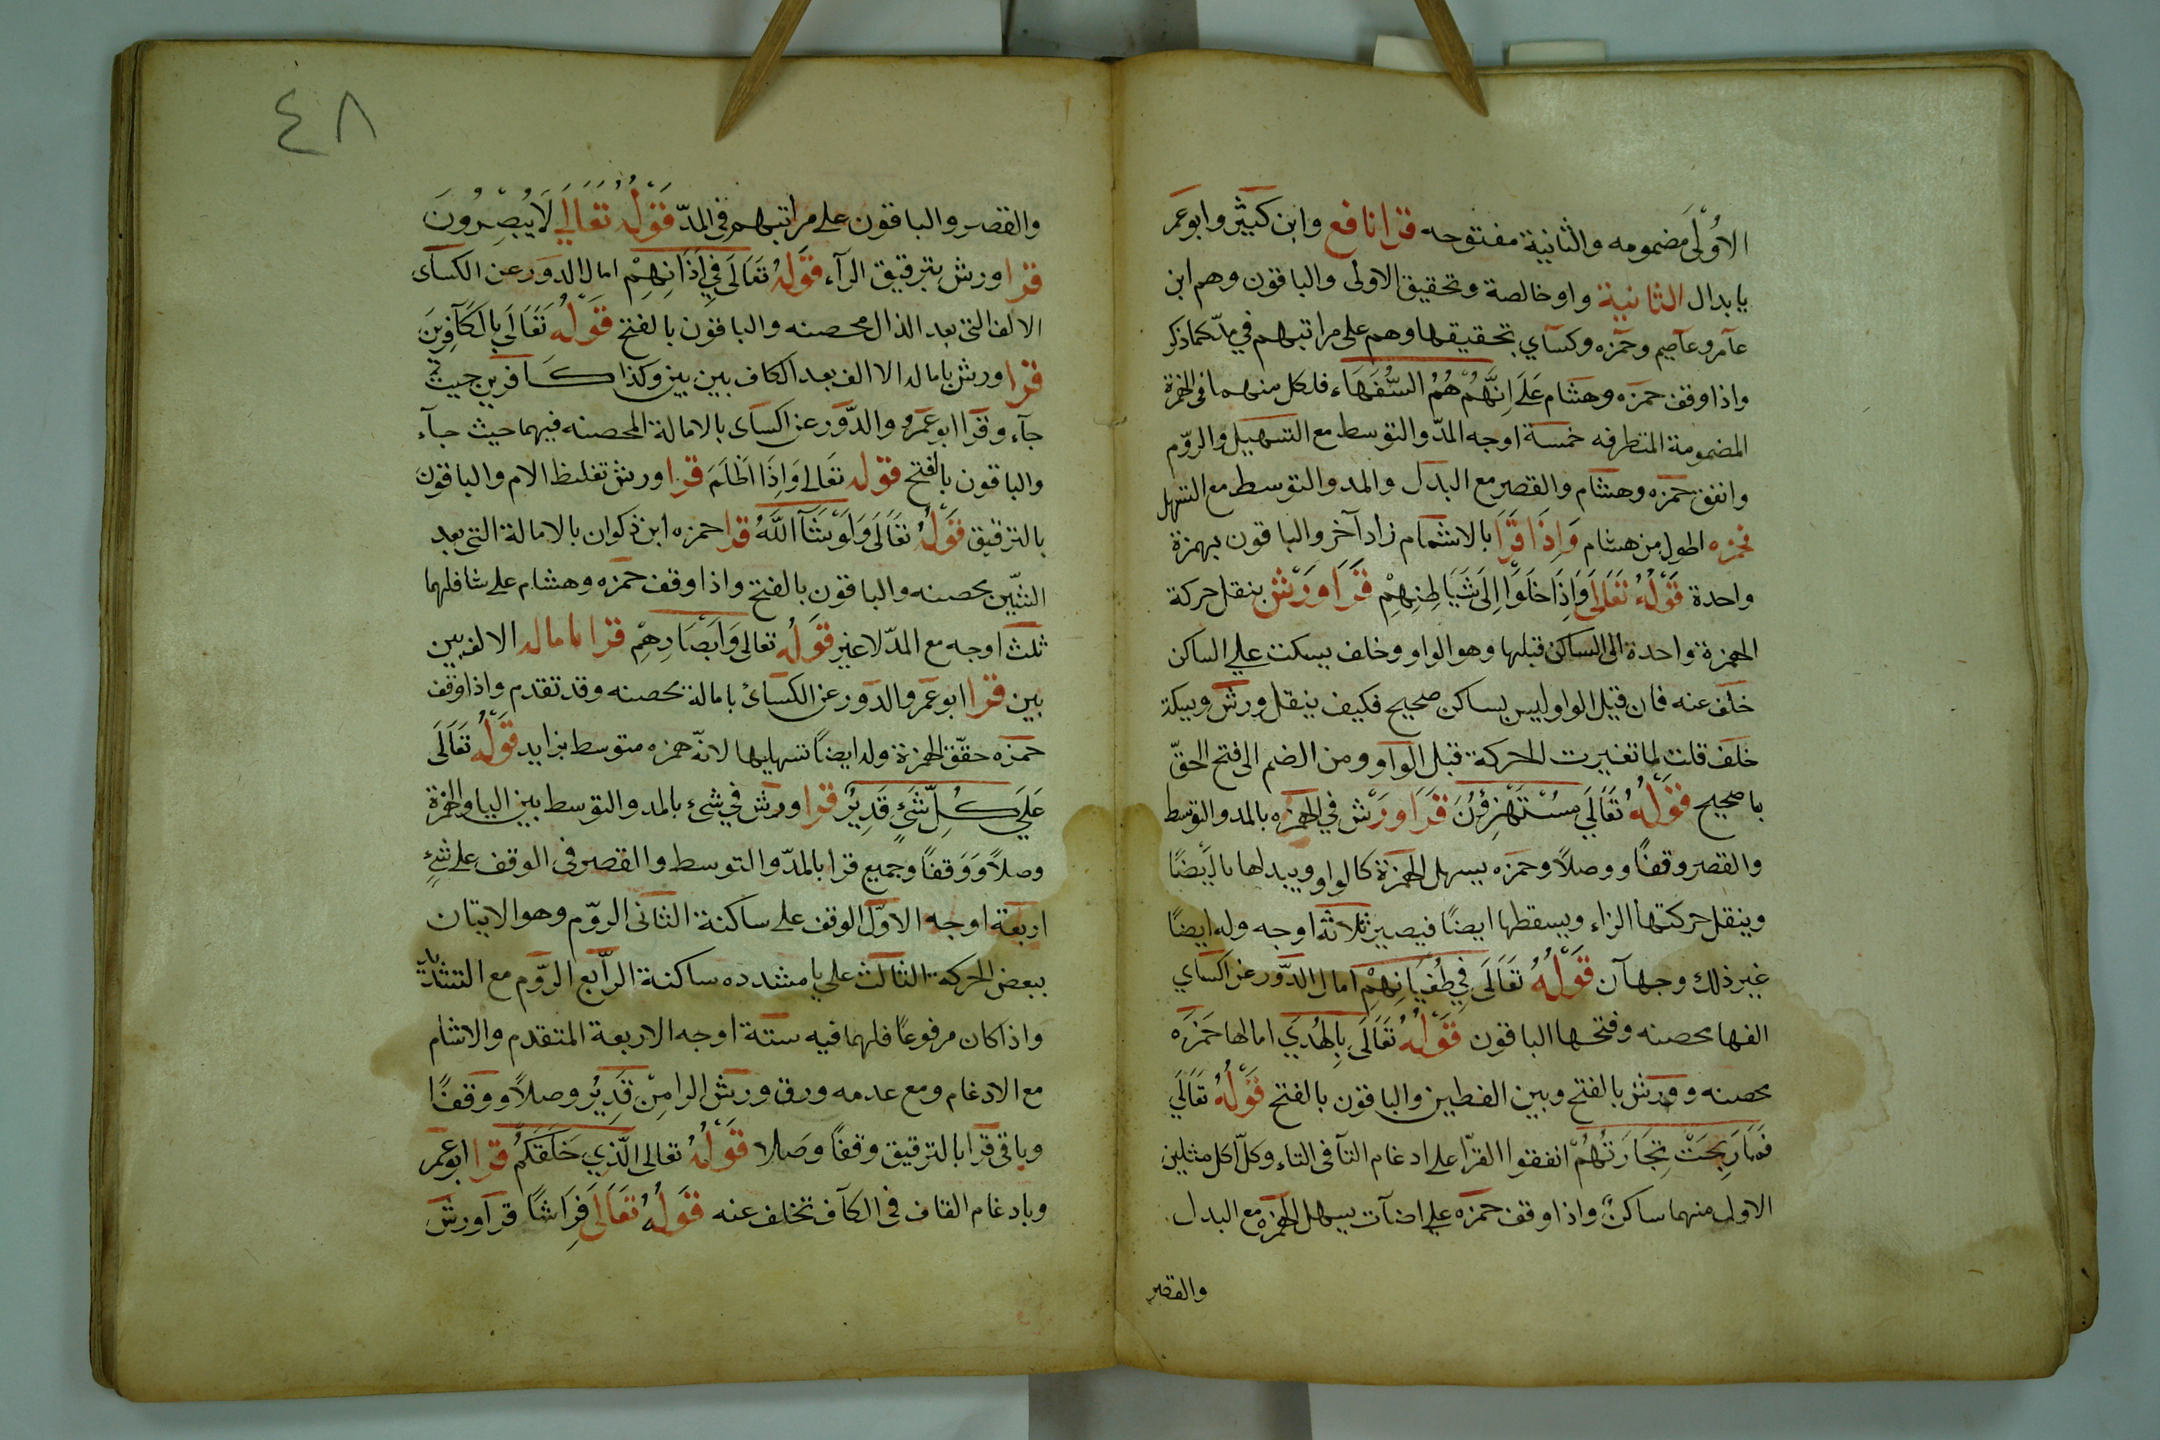 الاُوْلَى مضمومه والثانية مفتوحه قرا نافع وابن كثير وابو عمر
يابدال الثانية واو خالصة وتحقيق الاولى والباقون وهم ابن
عآمر وعآصم وحمزه وكسآي بتحقيقها وهم على مراتبهم في مدّ كما ذكر
واذا وقف حمزه وهشام عَلَى اِنَّهُمْ هُمُ السُّفَهَاء فلكل منهما في الهمزة
المضمومة المتطرفه خمسة اوجه المدّ والتوسط مع التسهيل والروّم
واتفق حمزه وهشام والقصر مع البدل والمد والتوسط مع التسهل
فحمزه اطول من هشام وَاِذَا قَرَا بالاشمام زاد آخر والباقون بهمزة
واحدة قَوْلُهُ تَعَالَى وَاِذَا خَلَوْا اِلَى شَيَاطِنِهِمْ قَرَا وَرْش بنقل حركة
الهمزة واحدة الى الساكن قبلها وهو الواو وخلف بسكت على الساكن
خلف عنه فان قيل الواو ليس بساكن صحيح فكيف ينقل ورش ويسكت
خلف قلت لما تغيرت الحركة قبل الواو ومن الضم الى فتح الحقّ
با صحيح قَوْلُهُ تَعَالَى مُسْتَهْزِؤُنَ قَرَا وَرْش في الهمزه بالمد والتوسط
والقصر وقفًا ووصلًا وحمزه يسهل الهمزة كالواو ويبدلها يا ايضًا
وينقل حركتها الزاء ويسقطها ايضًا فيصير ثلاثة اوجه وله ايضًا
غير ذلك وجهآن قَوْلُهُ تَعَالَى فِي طُغْيَانِهِمْ امال الدّور عن اكساي
الفها محصنه وفتحها الباقون قَوْلُهُ تَعَالَى بِالْهُدَي امالها حَمْزَه
محصنه وورش بالفتح وبين الفطين والباقون بالفتح قَوْلُهُ تَعَالَي
فَمَا رَبِحَتْ تِجَارَتُهُمْ اتفقوا القرّا على ادغام التآ فى التاء وكلّ كل مثلين
الاول منهما ساكنٌ واذا وقف حمزه على اضآت يسهل الهمزه مع البدل
والقصر
٤٨
والقصر والباقون على مراتبهم فى المدّ قَوْلُهُ تَعَالَي لَا يُبْصِرُونَ
قرا ورش بترقيق الرآء قَوْلُهُ تَعَالَى فِي اَذَانِهِمْ امال الدور عن الكسآى
الالف التى بعد الذال محصنه والباقون بالفتح قَوْلُهُ تَعَالَى بِالكَآفِرِينَ
قرا ورش باماله الا الف بعد الكاف بين بين وكذا كافرين حيث
جآء وقرا ابو عمرو والدّور عن اكساى بالامالة المحصنه فيهما حيث جآء
والباقون بالفتح قوله تعالى وَاِذَا اَظْلَمَ قرا ورش تغلبظ الام والباقون
بالترقيق قَوْلُهُ تَعَالَى وَلَوْ شَآ اللَّهُ قرا حمزه ابن ذكوان بالامالة التى بعد
الشّين محصنه والباقون بالفتح واذا وقف حمزه وهشام على شا فلهما
ثلث اوجه مع المدّ لا غير قَوْلُهُ تعالى وَاَبْصَارِهِمْ قرا باماله الالف بين
بين قرا ابو عمر والدور عن الكسائ بامالة محصنه وقد تقدم واذا وقف
حمزه حقّق الهمزة وله ايضًا تسهيلها لانّه همزه متوسط بزايد قَوْلُهُ تَعَالَى
عَلَي كُلِّ شَئٍ قَدِيرٌ قرا ورش في شئ بالمد والتوسط بين اليا والهمزة
وصلًا وَوَقفًا وجميع قرا بالمدّ والتوسط والقصر فى الوقف على شئٍ
اربعة اوجه الاوّل الوقف على ساكنة الثانى الروّم وهو الايتان
ببعض الحركة الثالث على يا مشدده ساكنة الرّابع الروّم مع التشديد
واذا كان مرفوعًا فلهما فيه ستة اوجه الاربعة المتقدم والاشام
مع الادغام ومع عدمه ورق ورش الرا مِنْ قَدِيْرٌ وصلًا ووقفًا
وباقى قرا بالترقيق وقفًا وصلا قَوْلُهُ تعالى الَّذِي خَلَقَكُمْ قرا ابو عمر
وبادغام القاف فى الكآف تخلف عنه قَوْلُهُ تَعَالَى فِرَاشًا قرا ورش